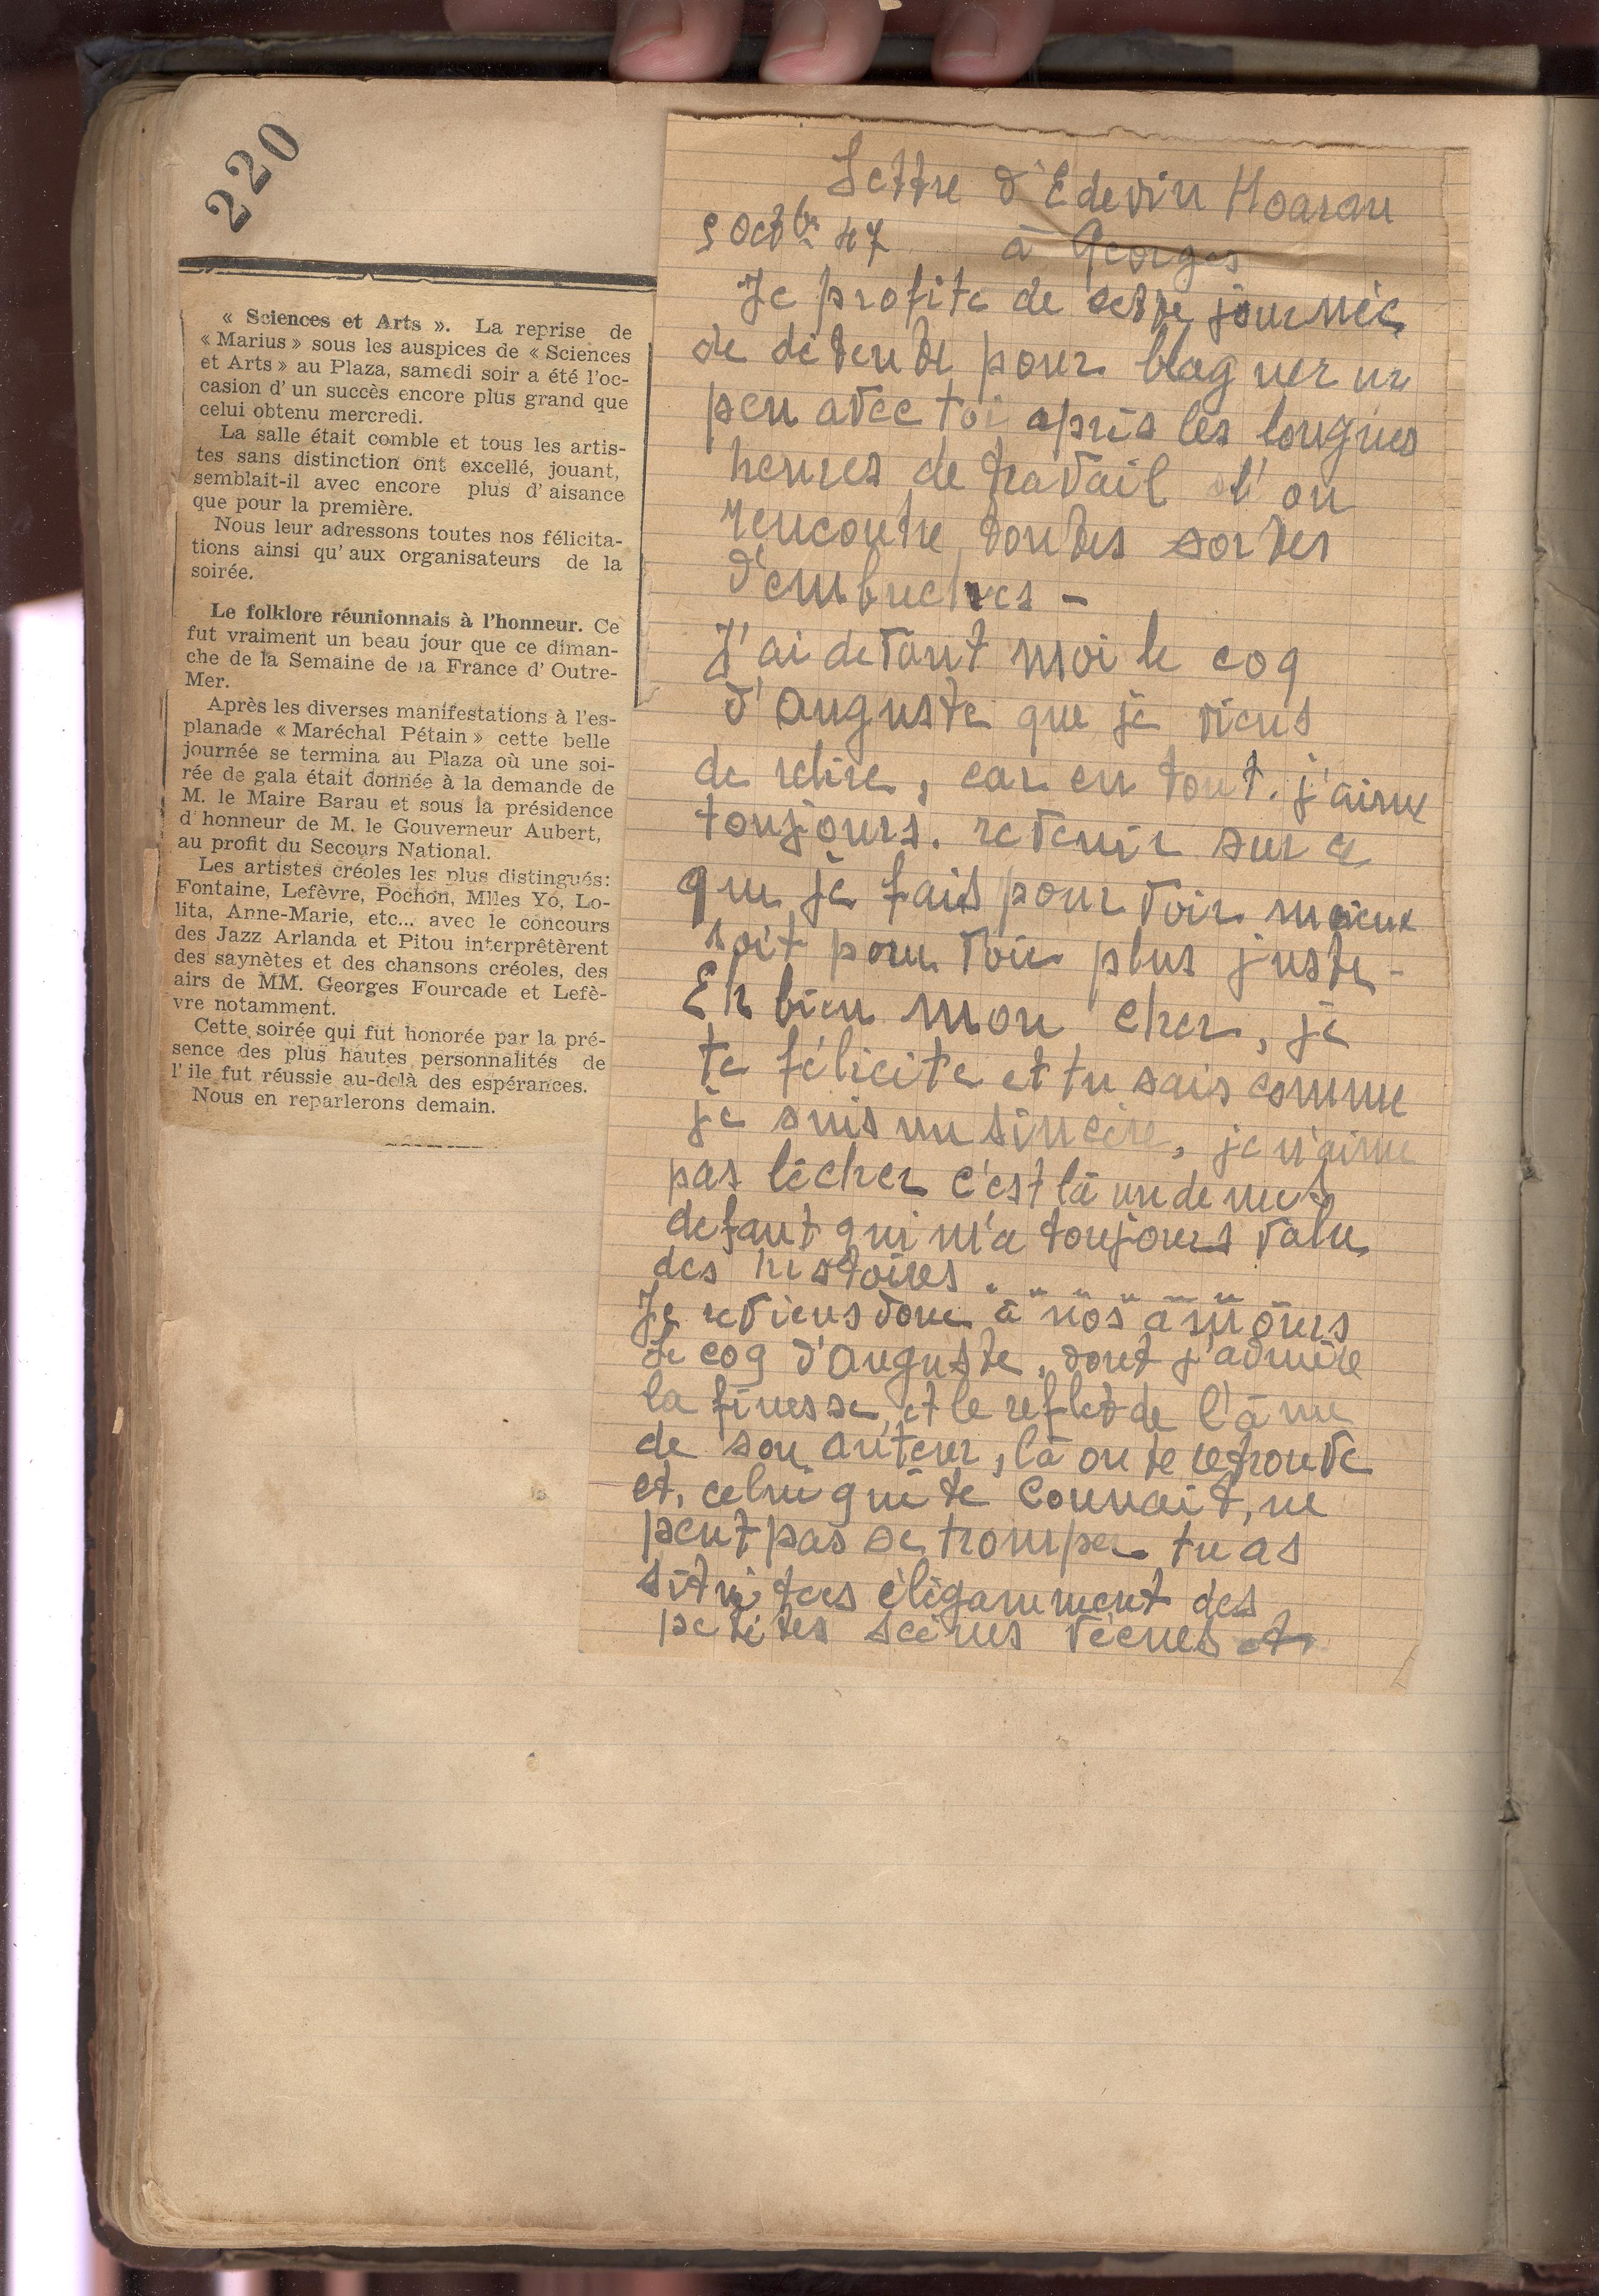 220
« Sciences et Arts ». La reprise de
« Marius » sous les auspices de « Sciences
et Arts » au Plaza, samedi soir a été l'oc-
casion d'un succès encore plus grand que
celui obtenu mercredi.
La salle était comble et tous les artis-
tes sans distinction ont excellé, jouant,
semblait-il avec encore plus d'aisance
que pour la première.
Nous leur adressons toutes nos félicita-
tions ainsi qu'aux organisateurs de la
soirée.
Le folklore réunionnais à l'honneur. Ce
fut vraiment un beau jour que ce diman-
che de la Semaine de la France d'Outre-
Mer.
Après les diverses manifestations à l'es-
planade « Maréchal Pétain » cette belle
journée se termina au Plaza où une soi-
rée de gala était donnée à la demande de
M. le Maire Barau et sous la présidence
d'honneur de M. le Gouverneur Aubert,
au profit du Secours National.
Les artistes créoles les plus distingués:
Fontaine, Lefèvre, Pochon, Mlles Yo, Lo-
lita, Anne-Marie, etc... avec le concours
des Jazz Arlanda et Pitou interprêtèrent
des saynètes et des chansons créoles, des
airs de MM. Georges Fourcade et Lefè-
vre notamment.
Cette soirée qui fut honorée par la pré-
sence des plus hautes personnalités de
l'ile fut réussie au-delà des espérances.
Nous en reparlerons demain.
Lettre d'Edevin Hoarau
5 Octbre 47 à Georges
Je profite de cette journée
de détente pour blaguer un
peu avec toi après les longues
heures de travail où on
rencontre toutes sortes
d'embuches -
J'ai devant moi le coq
d'Auguste que je viens
de relire, car en tout. j'aime
toujours. revenir sur ce
que je fais pour voir mieux
soit pour voir plus juste -
Eh bien mon cher, je
te félicite et tu sais comme
je suis un sincère, je n'aime
pas lécher c'est là un de mes
defaut qui m'a toujours valu
des histoires . . . . . .
Je reviens donc à nos amours
Le coq d'Auguste, dont j'admire
la finesse, et le reflet de l'âme
de son auteur, là on te retrouve
et, celui qui te connait, ne
peut pas se tromper tu as
élégamment des
petites scènes vécues et